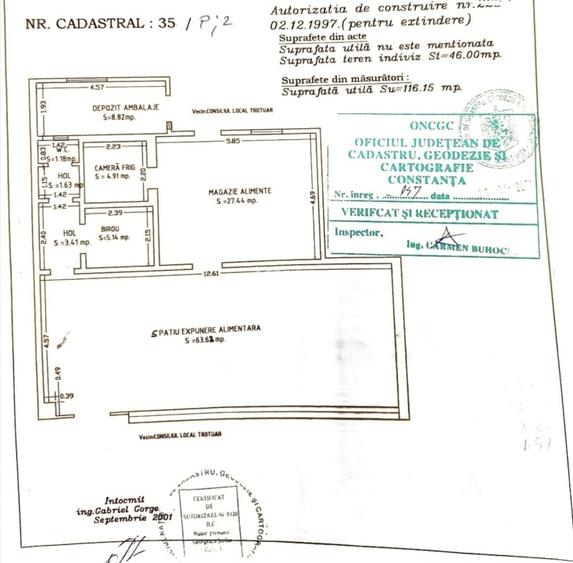 NR. CADASTRAL : 35 / P;2
Autorizatia de construire nr.
02.12.1997.(pentru extindere)
Suprafete din acte
Suprafata utilă nu este mentionata
Suprafata teren indiviz St=46.00mp.
Suprafete din măsurători :
Suprafată utilă Su=116.15 mp.
4.57
1.93
DEPOZIT AMBALAJE
S=8.82mp.
Vecin:CONSILIUL LOCAL TROTUAR
5.85
1.42
W.C.
0.83
S=1.18mp.
1.42
HOL
1.15
S=1.63 mp.
1.42
2.23
CAMERĂ FRIG
S= 4.91 mp.
2.20
MAGAZIE ALIMENTE
S=27.44 mp.
4.69
2.39
BIROU
S=5.14 mp.
2.15
HOL
S =3.41 mp.
2.40
12.61
SPATIU EXPUNERE ALIMENTARA
S =63.62 mp.
4.57
0.49
0.39
Vecin:CONSILIUL LOCAL TROTUAR
ONCGC
OFICIUL JUDEȚEAN DE
CADASTRU, GEODEZIE ȘI
CARTOGRAFIE
CONSTANȚA
Nr. înreg. data
VERIFCAT ȘI RECEPȚIONAT
Inspector,
Ing. CARMEN BUHOC
Intocmit
ing.Gabriel Gorge
Septembrie 2001
CERTIFICAT
DE
AUTORIZARE